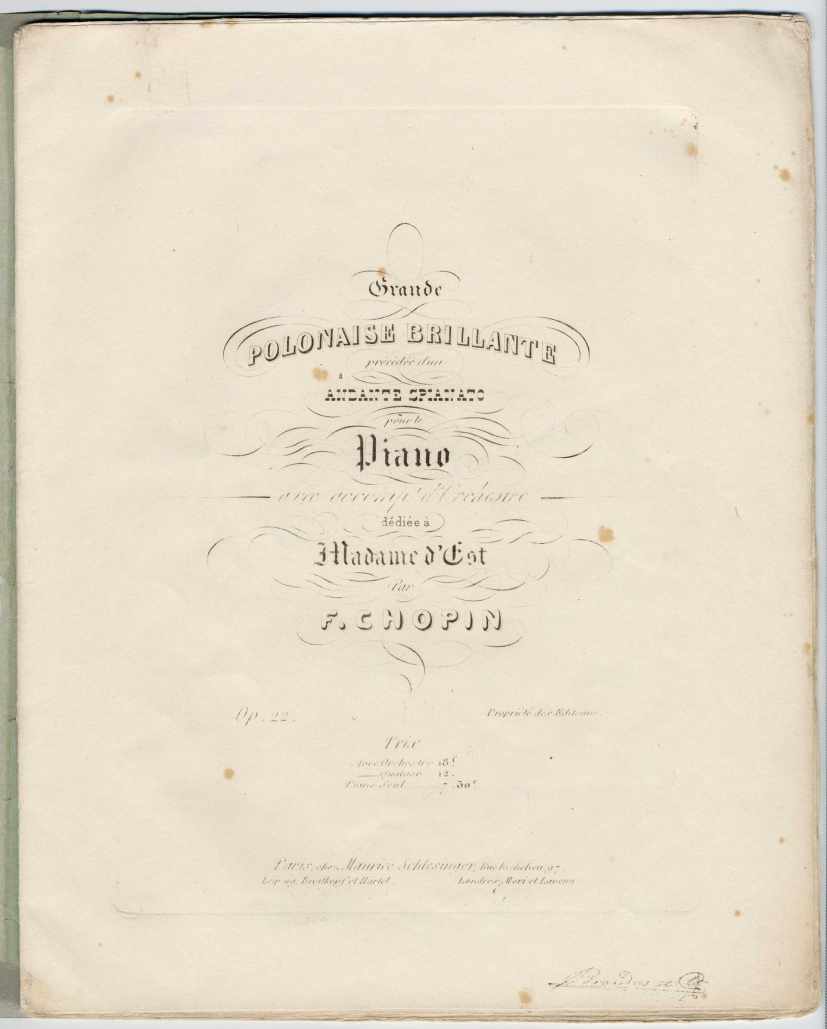 Grande
POLONAISE BRILLANTE
précédée d'un
ANDANTE SPIANATO
pour le
Piano
avec accomp.t d'Orchestre
dédiée à
Madame d'Est
Par
F. CHOPIN
Op. 22. Propriété des Editeurs.
Prix
Avec Orchestre 18f
12.
Piano Seul 7.50c
Paris, chez Maurice Schlesinger, Rue Richelieu, 97
Leipzig, Breitkopf et Härtel. Londres, Mori et Lavenu